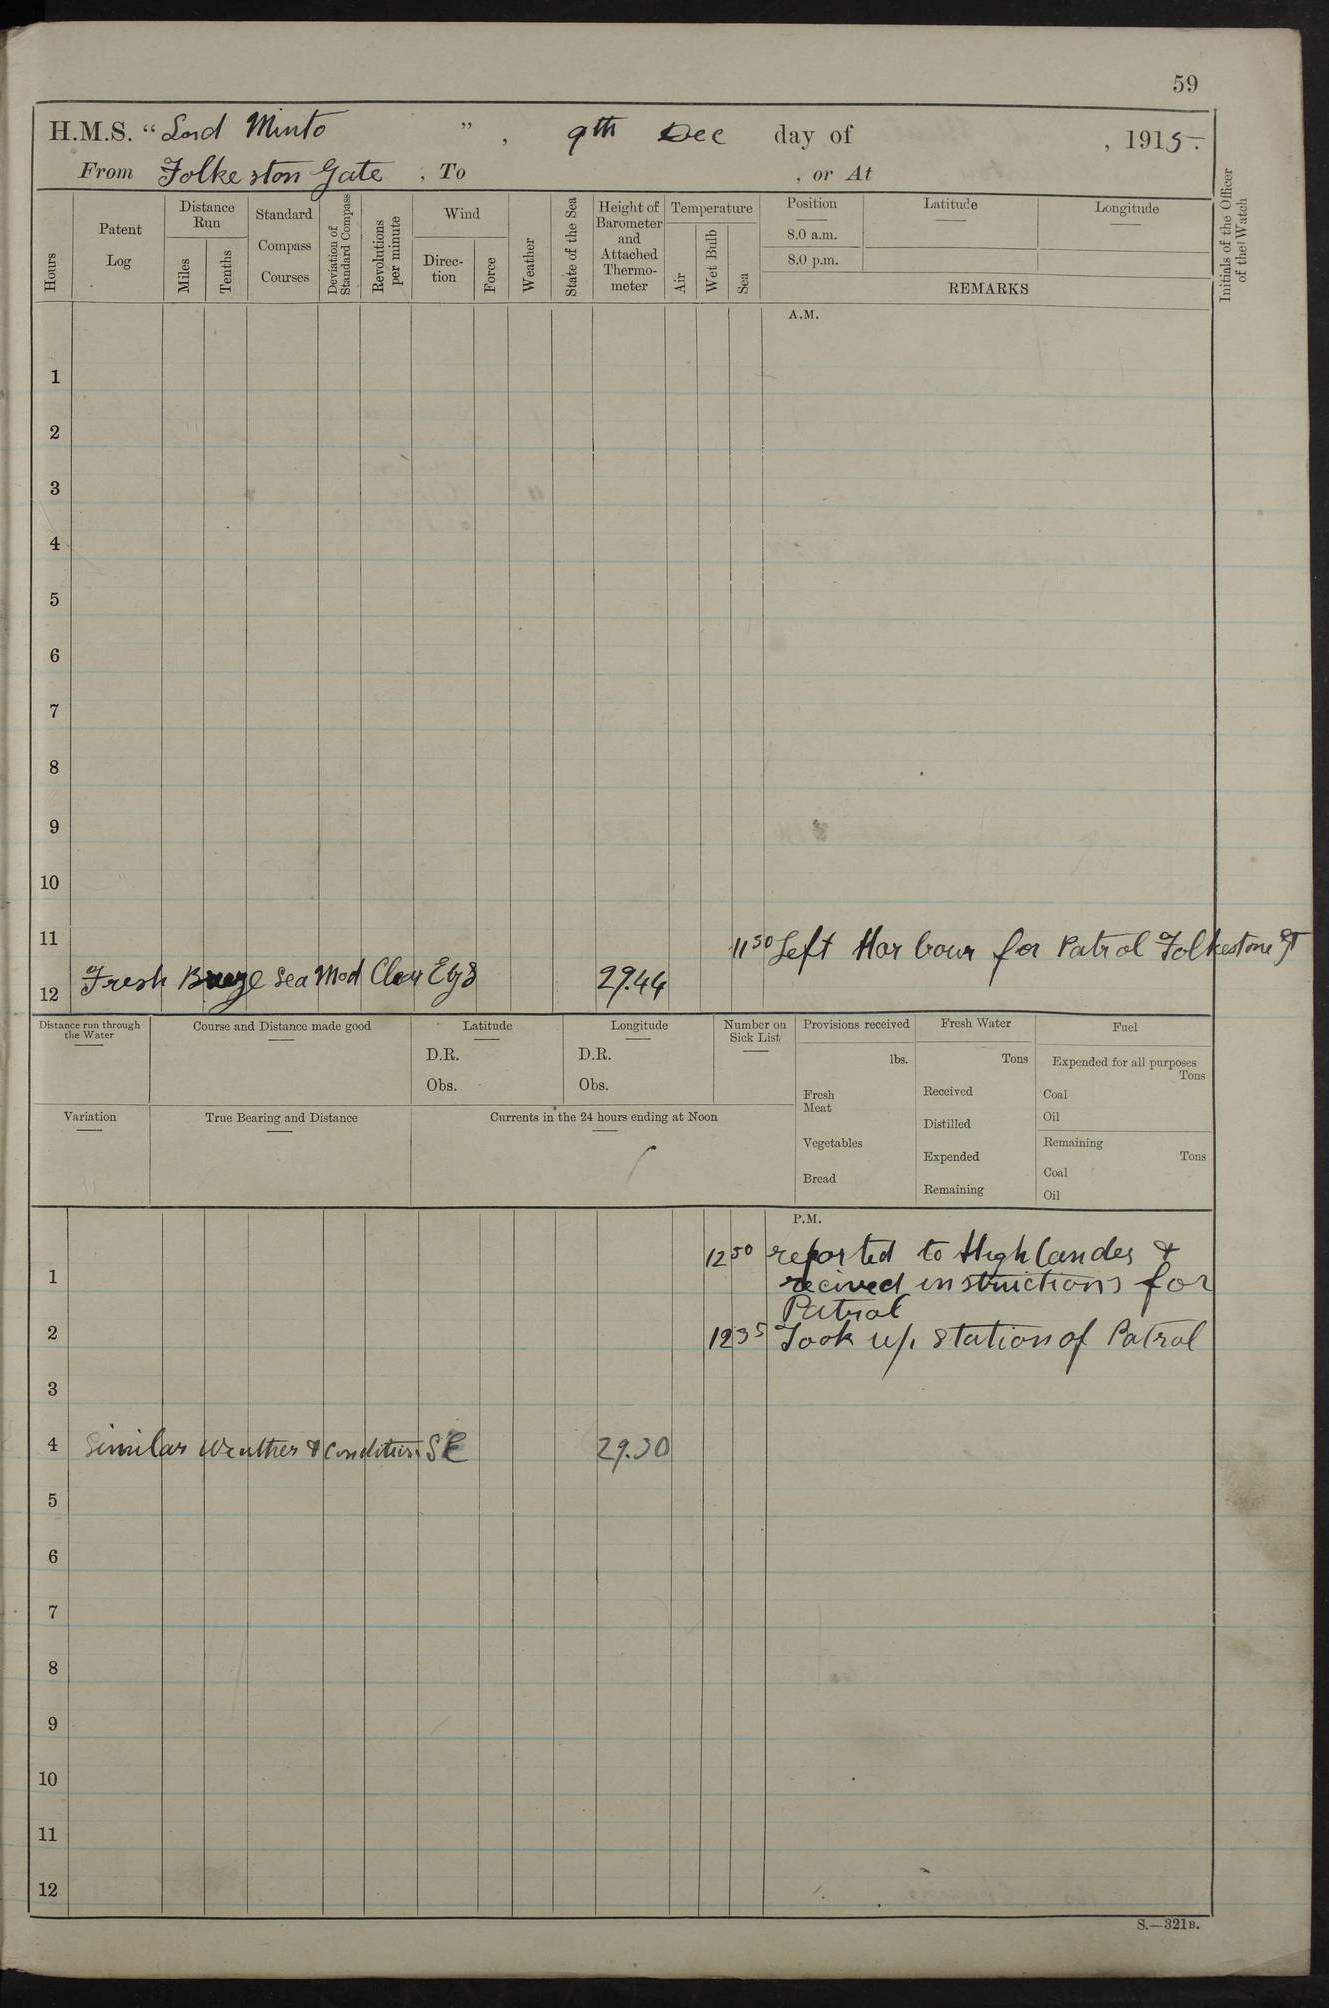 59
H.M.S. “Lord Minto ”, 9th Dec day of , 1915.
From Folkeston Gate , To , or At
Hours
Patent Log
Distance Run
Miles
Tenths
Standard Compass Courses
Deviation of Standard Compass
Revolutions per minute
Wind
Direction
Force
Weather
State of the Sea
Height of Barometer and Attached Thermometer
Temperature
Air
Wet Bulb
Sea
Position
8.0 a.m.
8.0 p.m.
Latitude
Longitude
REMARKS
Initials of the Officer of the Watch
A.M.
1
2
3
4
5
6
7
8
9
10
11 11 50 Left Harbour for Patrol Folkestone GT
12 Fresh Breeze Sea Mod Clear Ely 29.44
Distance run through the Water
Course and Distance made good
Latitude
D.R.
Obs.
Longitude
D.R.
Obs.
Number on Sick List
Provisions received
lbs.
Fresh Meat
Vegetables
Bread
Fresh Water
Tons
Received
Distilled
Expended
Remaining
Fuel
Expended for all purposes
Tons
Coal
Oil
Remaining
Tons
Coal
Oil
Variation
True Bearing and Distance
Currents in the 24 hours ending at Noon
P.M.
12 30 reported to Highlander &
1 recived instructions for
Patrol
2 12 35 Took up station of Patrol
3
4 Similar Weather & Conditions SE 29.30
5
6
7
8
9
10
11
12
S.—321B.